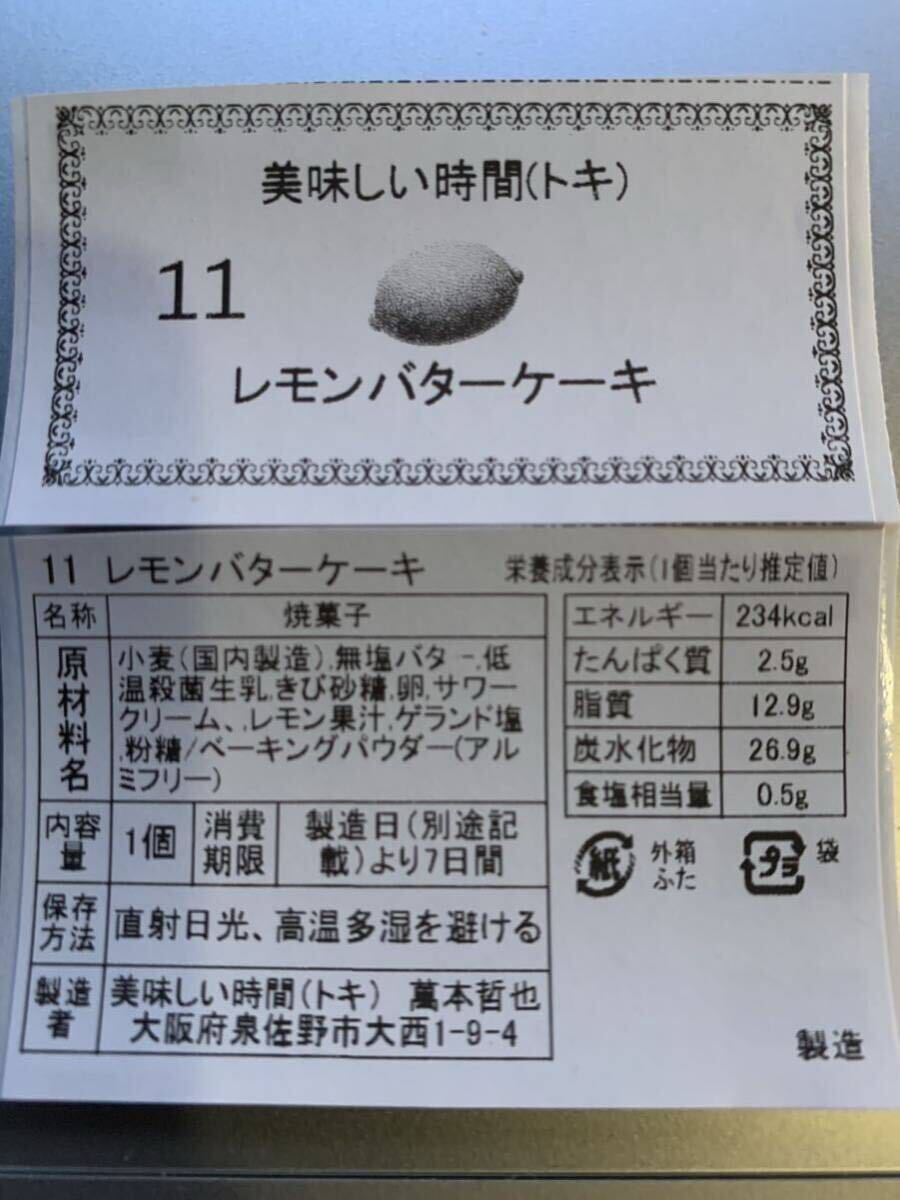 美味しい時間(トキ)
11
レモンバターケーキ
11 レモンバターケーキ
名称 焼菓子
原材料名
小麦(国内製造),無塩バター,低
温殺菌生乳,きび砂糖,卵,サワー
クリーム、,レモン果汁,ゲランド塩
,粉糖/ベーキングパウダー(アル
ミフリー)
内容量 1個
消費期限
製造日(別途記
載)より7日間
保存方法 直射日光、高温多湿を避ける
製造者
美味しい時間(トキ) 萬本哲也
大阪府泉佐野市大西1-9-4
栄養成分表示(1個当たり推定値)
エネルギー 234kcal
たんぱく質 2.5g
脂質 12.9g
炭水化物 26.9g
食塩相当量 0.5g
紙 外箱
ふた
プラ 袋
製造